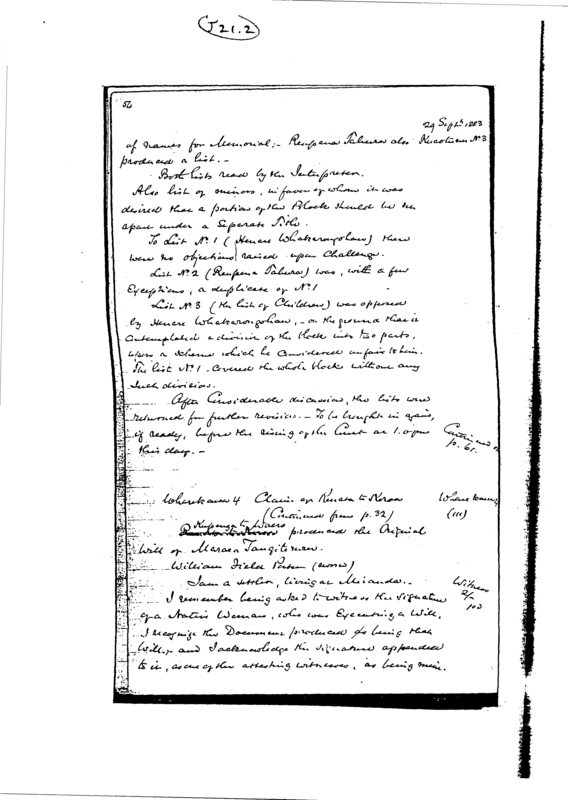 J21.2
56
29 Septr. 1883
of names for Memorial; - Reupena Tahura also
No 3
produced a list. -
Both lists read by the Interpreter.
Also list of minors, in favor of whom it was
desired that a portion of the Block should be set
apart under a Separate Title.
To List No. 1 (Henare Whakarongohau) there
were no objections raised upon Challenge.
List No. 2 (Reupena Tahura) was, with a few
Exceptions, a duplicate of No. 1
List No. 3 (the list of Children) was opposed
by Henare Whakarongohau, - on the ground that it
Contemplated a division of the block into two parts,
upon a Scheme which he Considered unfair to him.
The list No. 1 Covered the whole block without any
Such division.
After Considerable discussion, the lists were
returned for further revision. - To be brought in again,
if ready, before the rising of the Court at 1. o'
this day. -
Continued on
p. 61.
4 Claim of
(Continued from p. 32)
(III)
produced the Original
Will of
William Field Porter (sworn)
I am a settler, living at Miranda. -
Witness
I remember being asked to witness the signature
of a Native Woman, who was Executing a Will.
I recognize the Document produced as being that
Will, - and I acknowledge the signature appended
to it, as one of the attesting witnesses, as being mine.